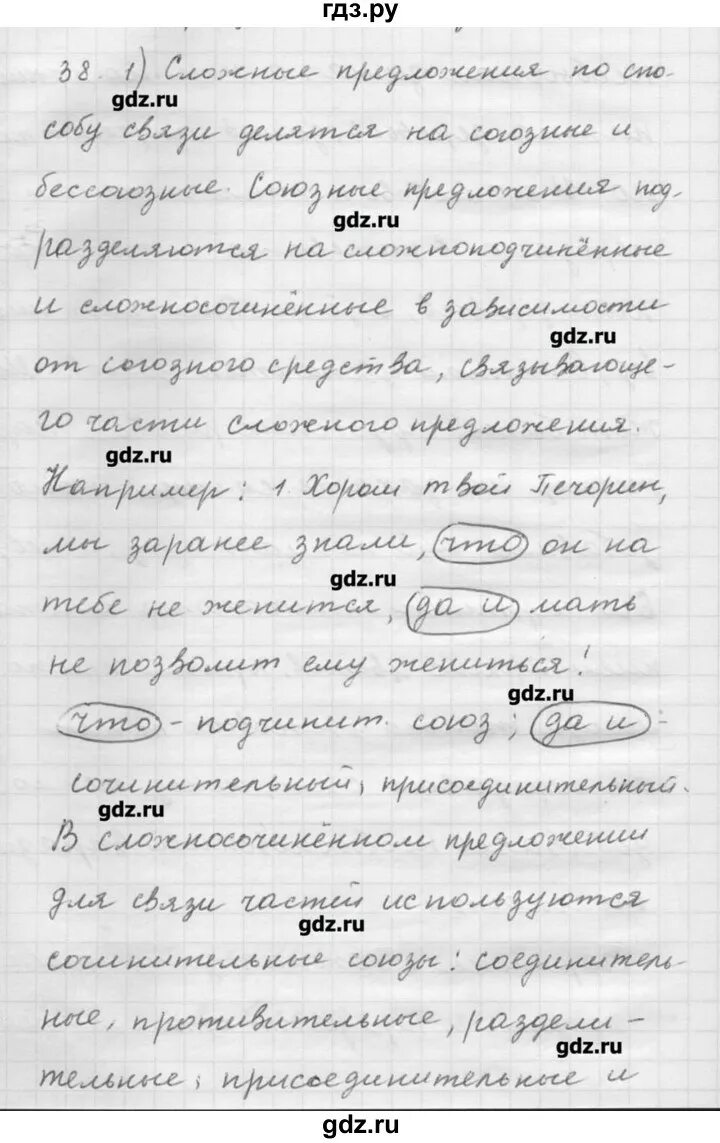 гдз.ру
38. 1) Сложные предложения по спо-
gdz.ru
собу связи делятся на союзные и
бессоюзные. Союзные предложения под-
gdz.ru
разделяются на сложноподчинённые
и сложносочинённые в зависимости
gdz.ru
от союзного средства, связывающе-
го части сложного предложения.
gdz.ru
Например: 1. Хорош твой Печорин,
мы заранее знали, что он на
gdz.ru
тебе не женится, да и мать
не позволит ему жениться!
gdz.ru
что - подчинит. союз; да и -
сочинительный, присоединительный.
gdz.ru
В сложносочинённом предложении
для связи частей используются
gdz.ru
сочинительные союзы: соединитель-
ные, противительные, раздели-
gdz.ru
тельные, присоединительные и
gdz.ru